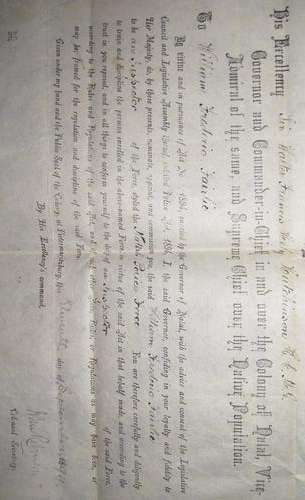 His Excellency Sir Walter Francis Hely Hutchinson K.C.M.G.
Governor and Commander-in-Chief in and over the Colony of Natal, Vice-
Admiral of the same, and Supreme Chief over the Native Population.
To William Frederic Fairlie
By virtue and in pursuance of Act No. 1894, enacted by the Governor of Natal, with the advice and consent of the Legislative
Council and Legislative Assembly thereof, entitled Police Act, 1894, I, the said Governor, confiding in your loyalty and fidelity to
Her Majesty, do, by these presents, nominate, appoint, and commission you, the said William Frederic Fairlie
to be an Inspector of the Force, styled the Natal Police Force. You are therefore carefully and diligently
to train and discipline the persons enrolled in the above-named Force in virtue of the said Act in that behalf made and according to the
trust in you reposed, and in all things to conform yourself to the duty of an Inspector of the said Force,
according to the Rules and Regulations of the said Act, and such other Rules or Regulations as may have been, or
may be, framed for the regulation and discipline of the said Force.
Given under my hand and the Public Seal of the Colony, at Pietermaritzburg, this day of
By His Excellency's command,
Colonial Secretary.